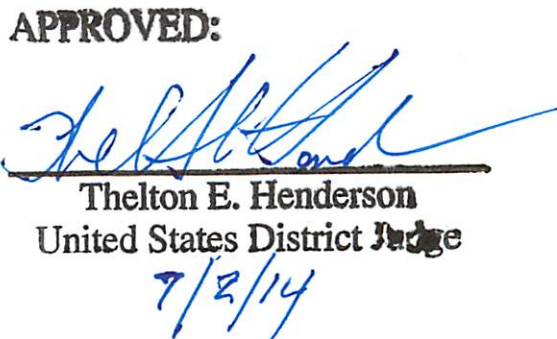 APPROVED:
Thelton E. Henderson
United States District Judge
7/2/14